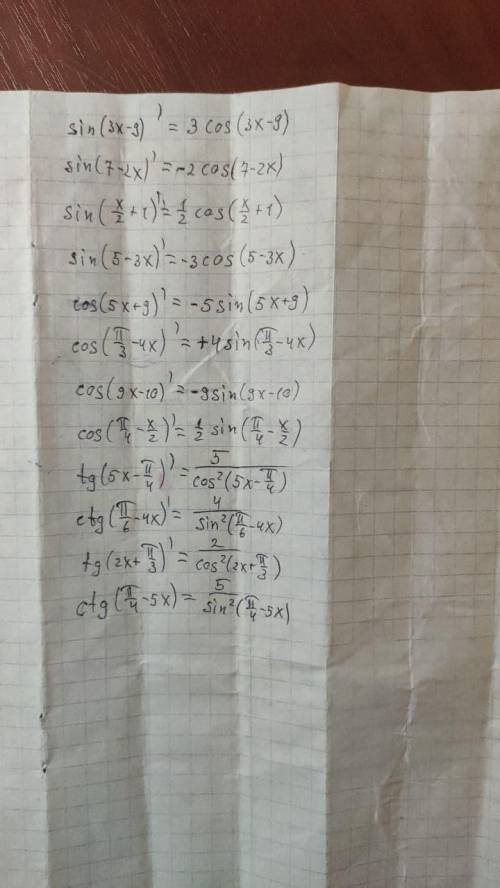 sin(3x-9)' = 3cos(3x-9)
sin(7-2x)' = -2cos(7-2x)
sin(x/2+1)' = 1/2 cos(x/2+1)
sin(5-3x)' = -3cos(5-3x)
cos(5x+9)' = -5sin(5x+9)
cos(π/3-4x)' = +4sin(π/3-4x)
cos(9x-10)' = -9sin(9x-10)
cos(π/4-x/2)' = 1/2 sin(π/4-x/2)
tg(5x-π/4)' = 5/cos²(5x-π/4)
ctg(π/6-4x)' = 4/sin²(π/6-4x)
tg(2x+π/3)' = 2/cos²(2x+π/3)
ctg(π/4-5x) = 5/sin²(π/4-5x)